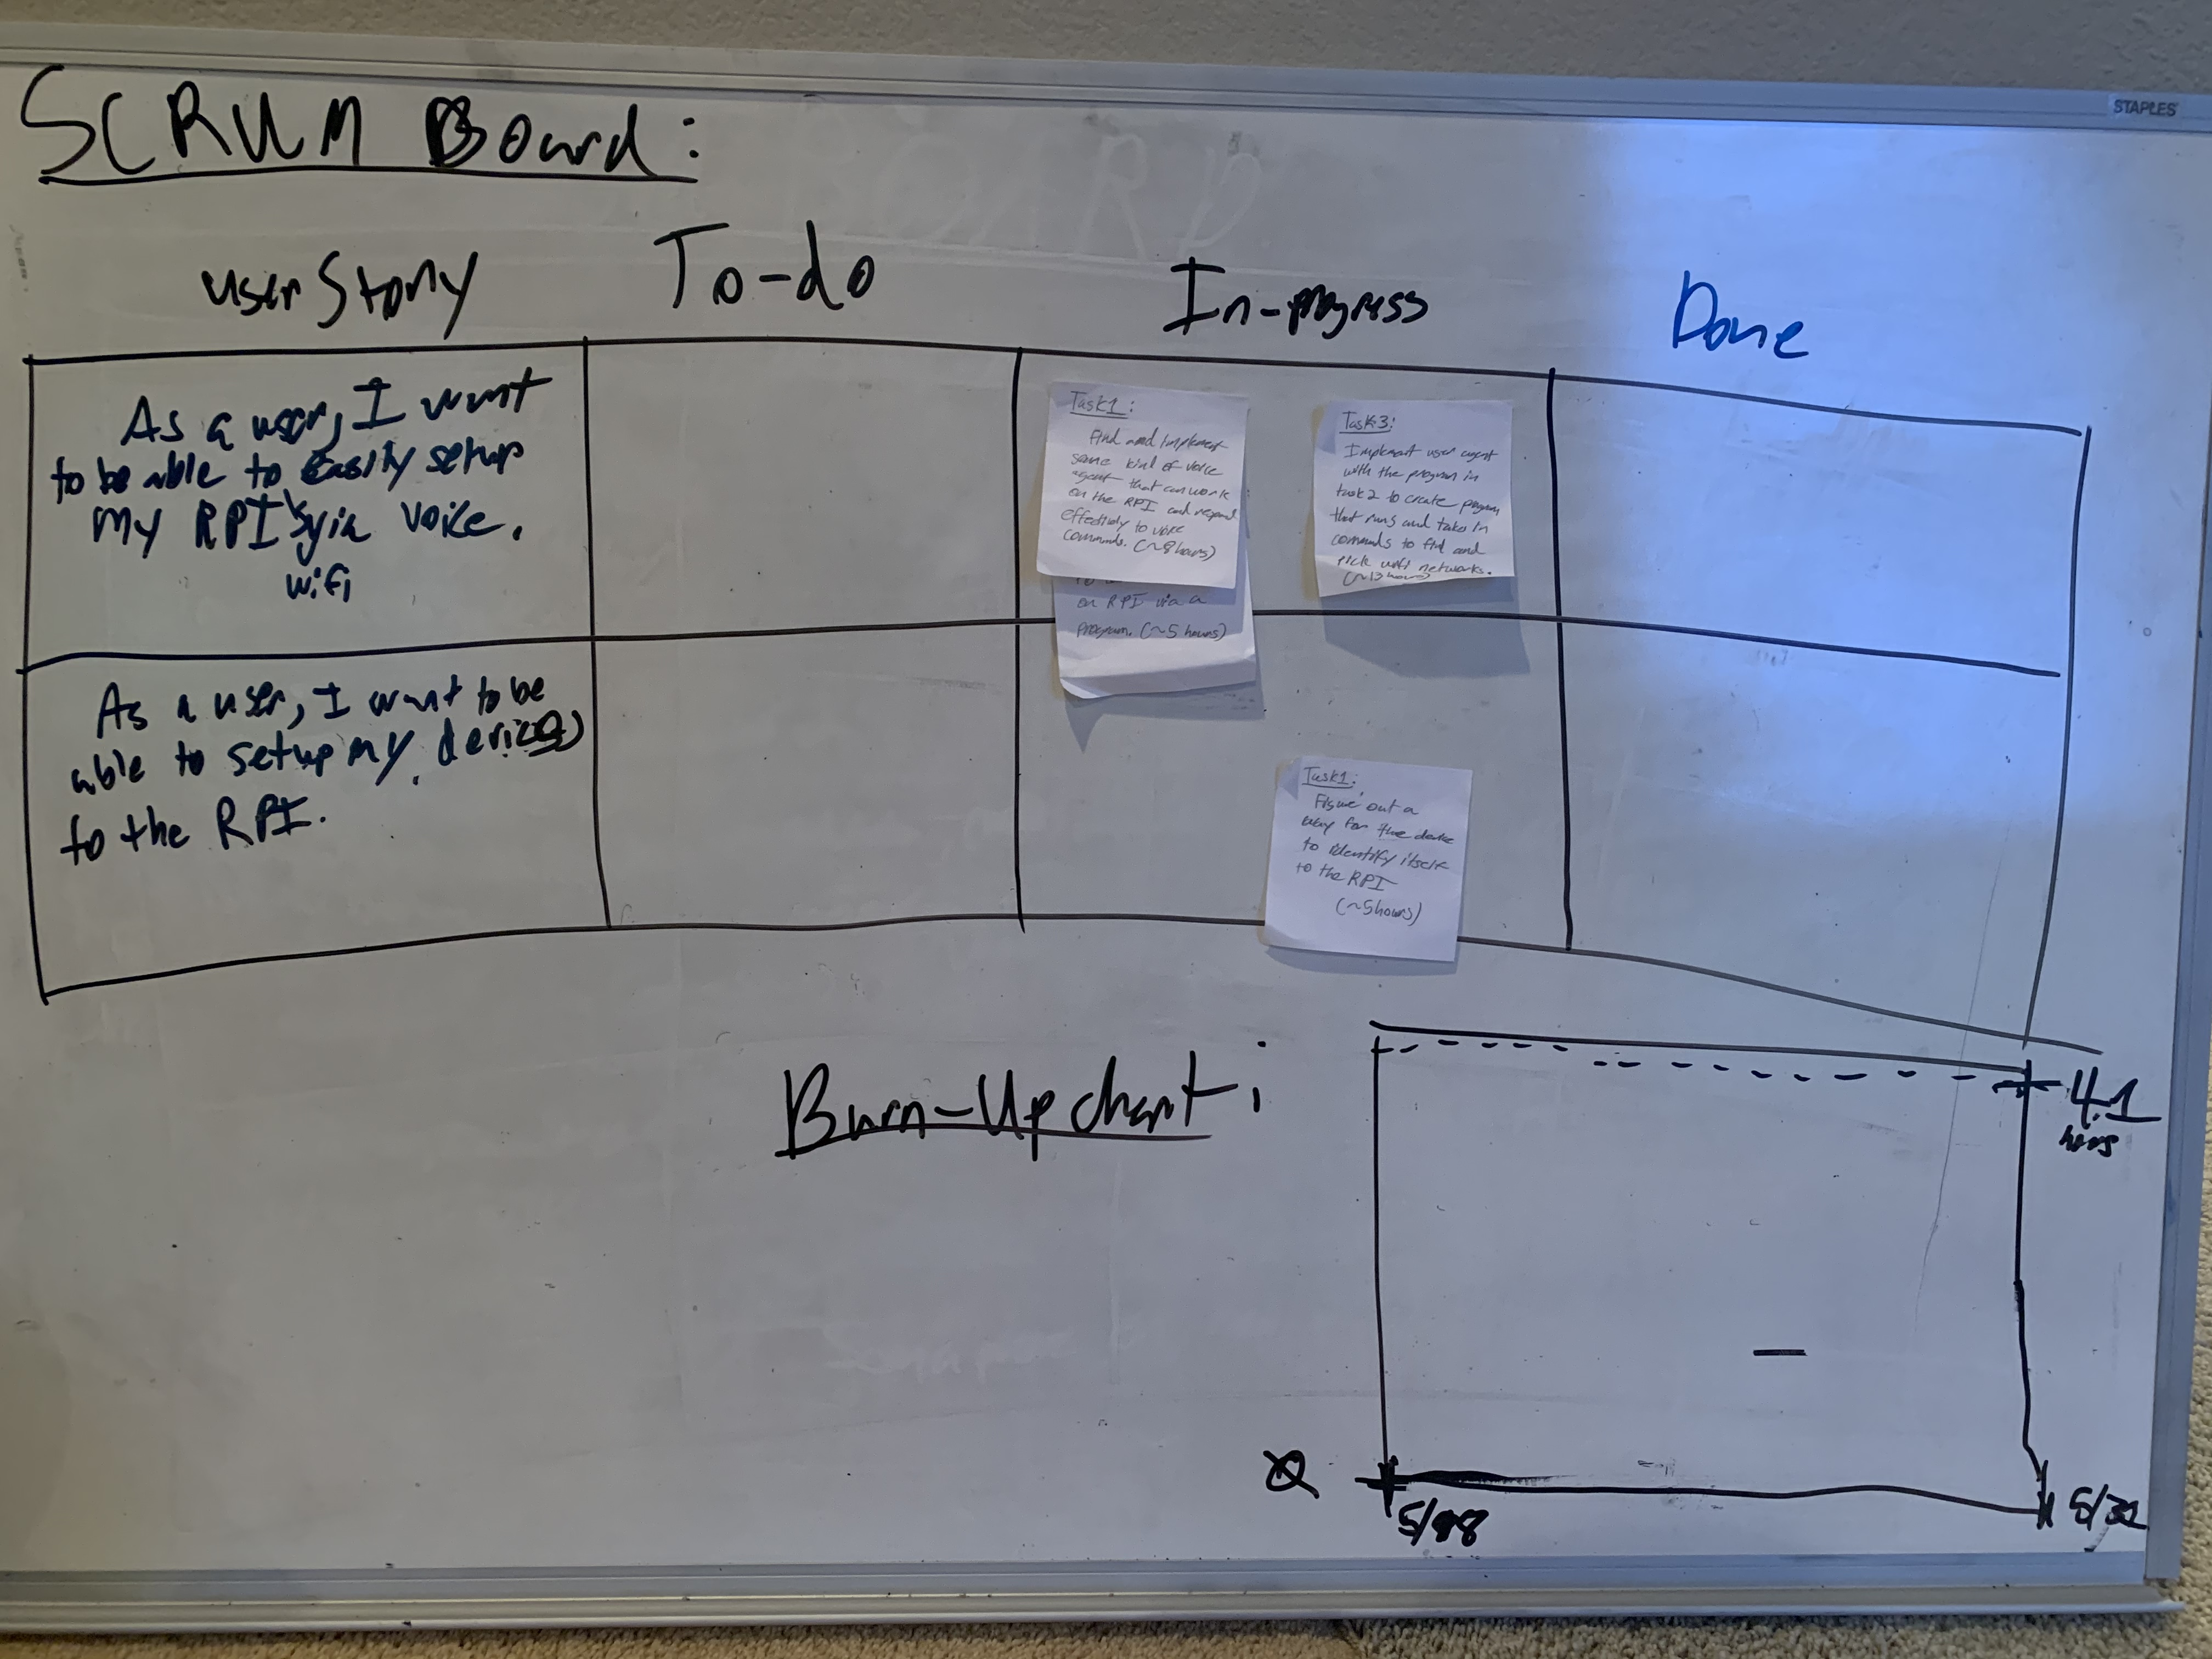 STAPLES
SCRUM Board:
User Story
To-do
In-progress
Done
As a user, I want
to be able to easily setup
my RPI's via voice.
wifi
Task1:
Find and implement
some kind of voice
agent that can work
on the RPI and respond
effectively to voice
commands. (~8 hours)
on RPI via a
program. (~5 hours)
Task3:
Implement user agent
with the program in
task 2 to create program
that runs and takes in
commands to find and
pick wifi networks.
As a user, I want to be
able to setup my device(s)
to the RPI.
Task1:
Figure out a
way for the device
to identify itself
to the RPI
(~5hours)
Burn-Up chart:
41
hours
0
5/
5/